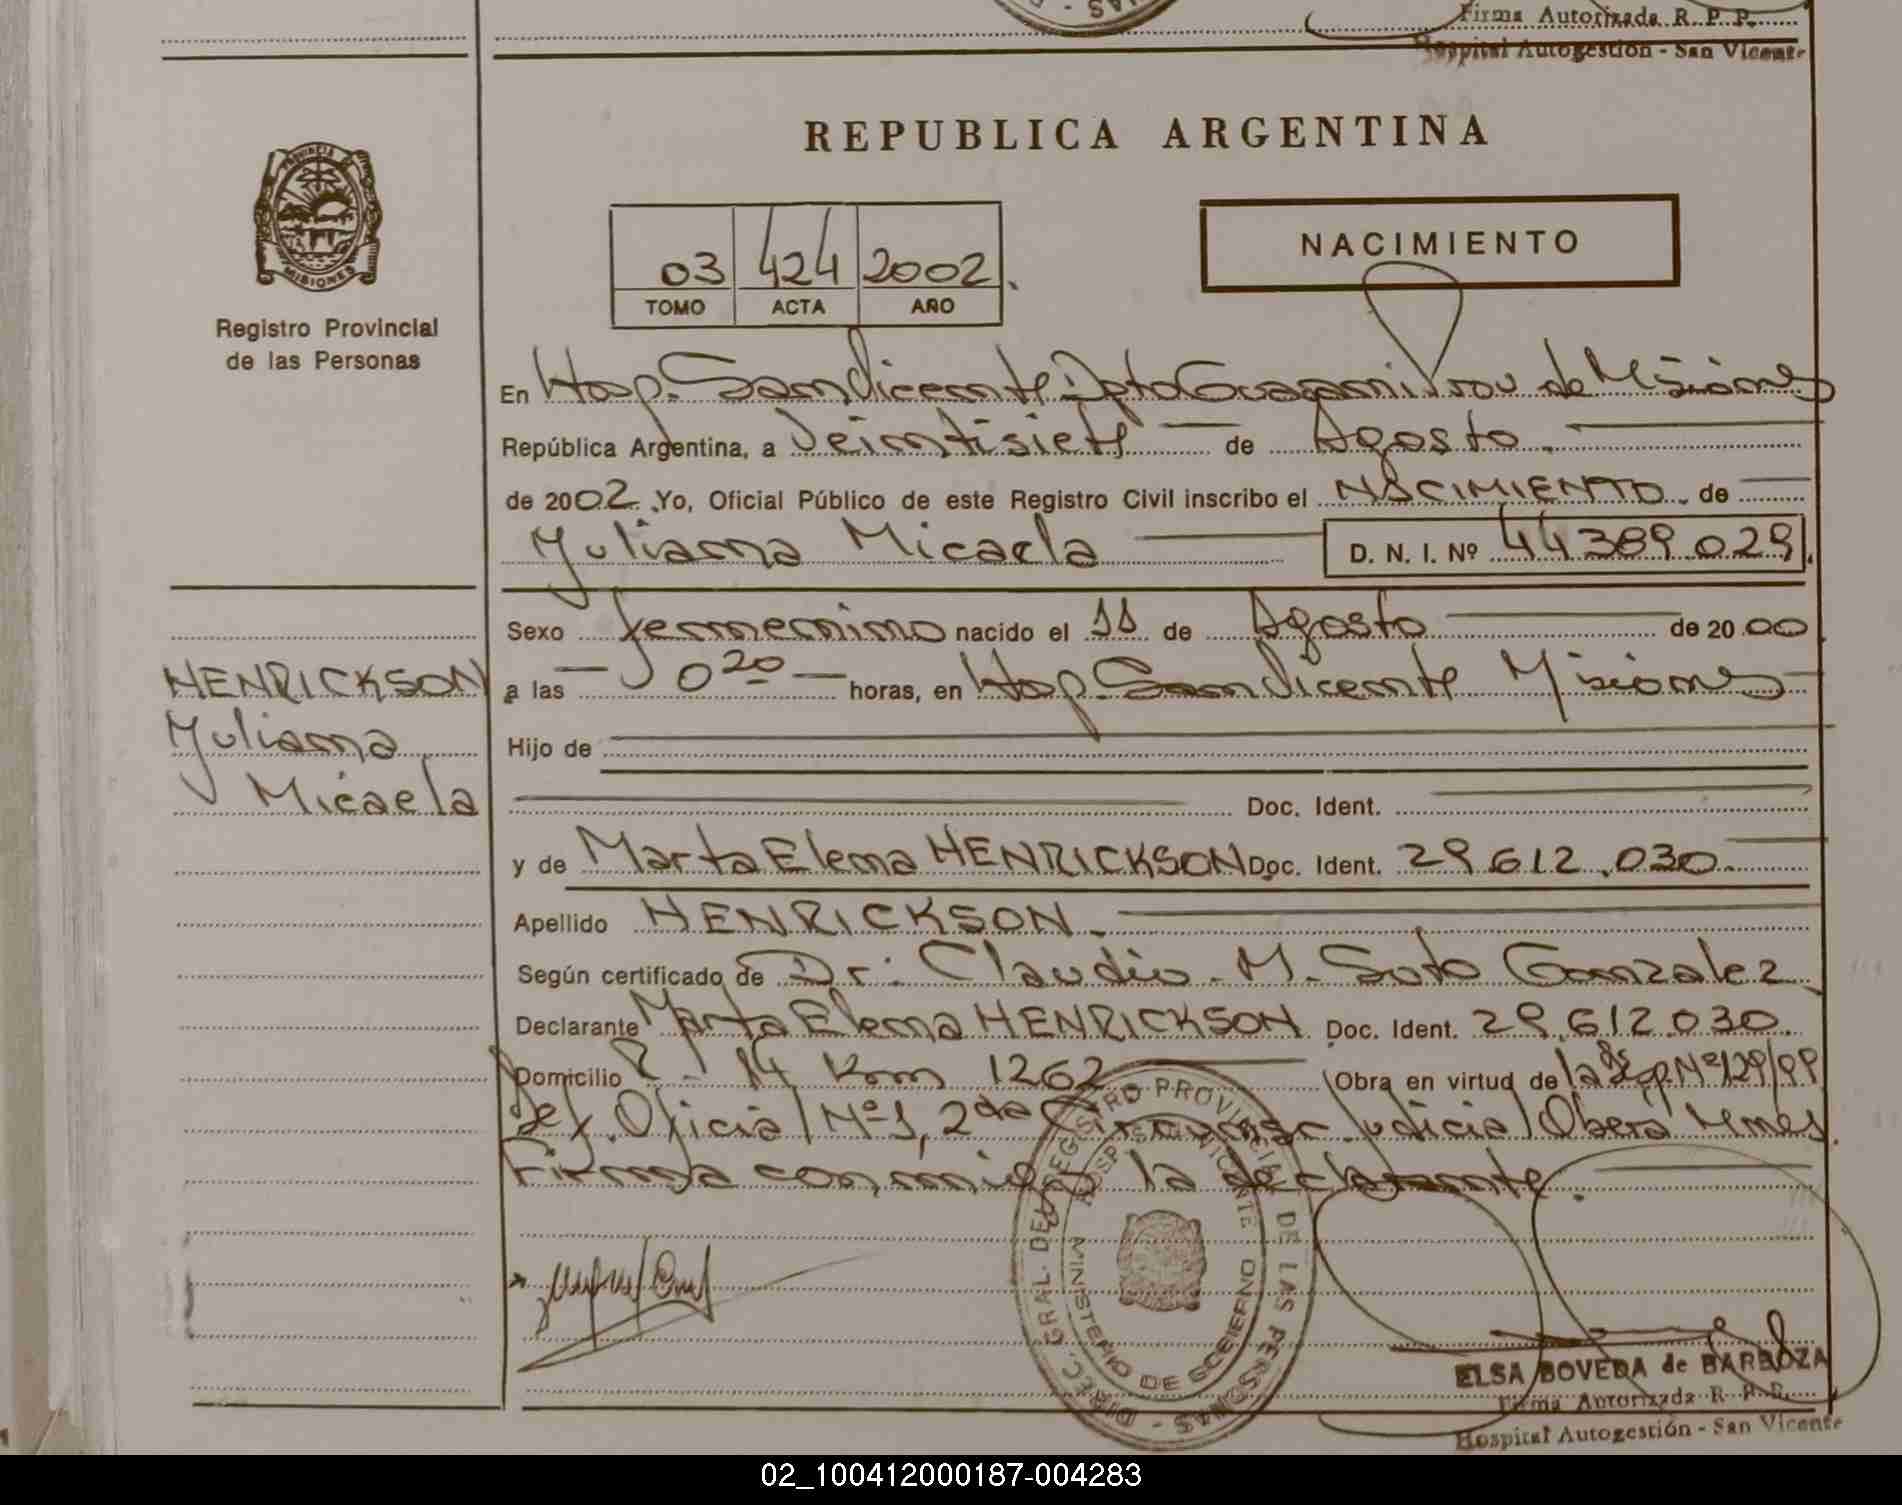 Firma Autorizada R. P. P.
Hospital Autogestión - San Vicente
REPUBLICA ARGENTINA
PROVINCIA DE
MISIONES
Registro Provincial
de las Personas
03 424 2002.
TOMO ACTA AÑO
NACIMIENTO
En Hosp. San Vicente Dpto Guarani Prov de Misiones
República Argentina, a Veintisiete de Agosto.
de 2002. Yo, Oficial Público de este Registro Civil inscribo el NACIMIENTO de
Yuliana Micaela D. N. I. Nº 44389.029
Sexo femenino nacido el 11 de Agosto de 2000
a las 0 20 horas, en Hosp. San Vicente Misiones
HENRICKSON
Yuliana
Micaela
Hijo de
Doc. Ident.
y de Marta Elena HENRICKSON Doc. Ident. 29.612.030
Apellido HENRICKSON.
Según certificado de Dr: Claudio. M. Soto Gonzalez
Declarante Marta Elena HENRICKSON Doc. Ident. 29.612.030.
Domicilio R. 14 Km 1262 Obra en virtud de la Nº129/99
Def. Oficial Nº1, 2da Judicial Oberá Mnes.
Firma conmigo la declarante.
DIREC. GRAL. DEL REGISTRO PROVINCIAL DE LAS PERSONAS -
HOSP. SAN VICENTE
MINISTERIO DE GOBIERNO
ELSA BOVEDA de BARBOZA
Firma Autorizada R. P. P.
Hospital Autogestión - San Vicente
02_100412000187-004283